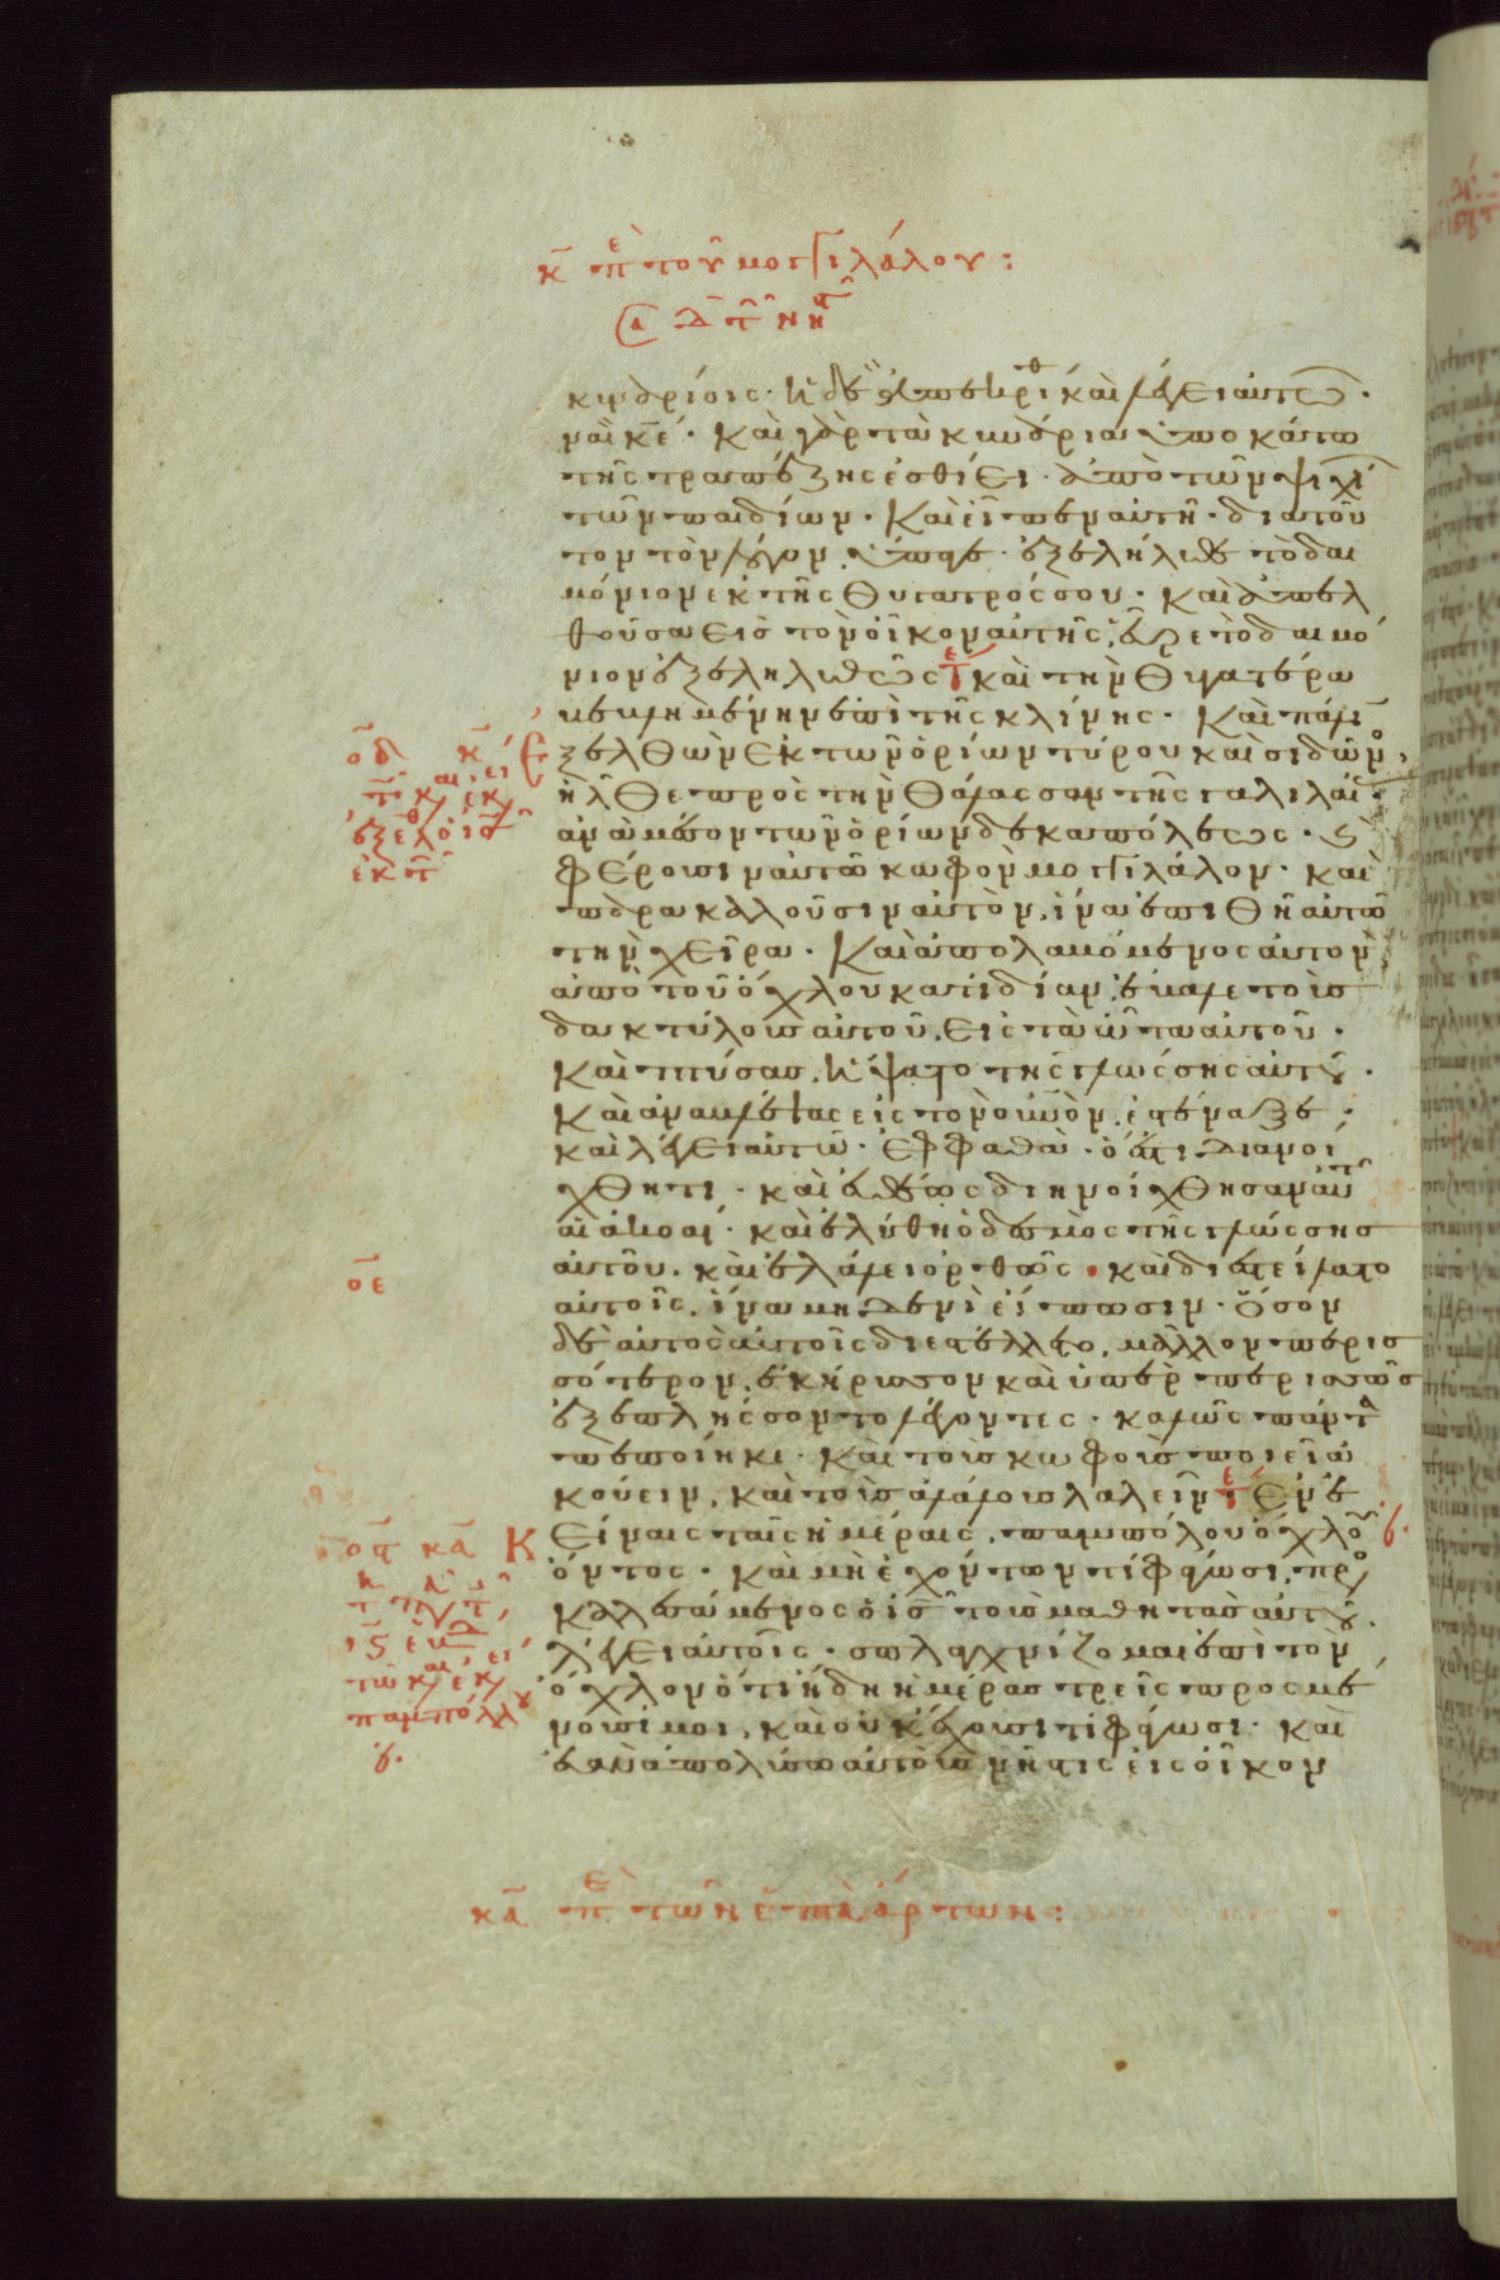 κ̅ περὶ τοῦ μογγιλάλου:
κυναρίοις· ἡ δὲ ἀπεκρίθ καὶ λέγει αὐτῶ·
ναὶ κ̅ε̅· καὶ γὰρ τὰ κυνάρια ὑποκάτω
τῆς τραπέζης ἐσθίει· ἀπὸ τῶν ψιχί
τῶν παιδίων· καὶ εἶπεν αὐτῆ· διατοῦ
τον τὸν λόγον ὕπαγε· ἐξελήλυθε τὸ δαι
μόνιον ἐκ τῆς θυγατρός σου· καὶ ἀπελ
θοῦσα εἰσ τὸν οἶκον αὐτῆς, εὗρε τὸ δαιμό
νιον ἐξεληλυθὼς τε καὶ τὴν θυγατέρα
βεβλημένην ἐπὶ τῆς κλίνης· Καὶ πάλι
ο̅δ̅ κ̅ Ἐξελθὼν ἐκ τῶν ὁρίων τύρου καὶ σιδῶνο,
ἦλθε πρὸς τὴν θάλασσαν τῆς γαλιλαί
ἀνὰ μέσον τῶν ὁρίων δεκαπόλεως· ϛ
φέρουσιν αὐτῶ κωφὸν μογγιλάλον· καὶ
παρακαλοῦσιν αὐτὸν, ἵνα ἐπιθῆ αὐτῶ
τὴν χεῖρα· Καὶ ἀπολαβόμενος αὐτὸν
ἀπὸ τοῦ ὄχλου κατιδίαν, ἔβαλε τοὺσ
δακτύλουσ αὐτοῦ, εἰς τὰ ὦτα αὐτοῦ·
Καὶ πτύσασ, ἥψατο τῆς γλώσσης αὐτοῦ·
Καὶ ἀναβλέψας εἰς τὸν οὐνὸν, ἐστέναξε·
καὶ λέγει αὐτῶ· ἐφφαθὰ· ὅ ἐστι διανοί
χθητι· καὶ εὐθέως διηνοίχθησαν αὐτ
αἱ ἀκοαί· καὶ ἐλύθη ὁ δεσμὸς τῆς γλώσσησ
ο̅ε̅ αὐτοῦ. καὶ ἐλάλει ὀρθῶς· καὶ διεστείλατο
αὐτοῖς, ἵνα μηδενὶ εἴπωσιν· ὅσον
δὲ αὐτὸς αὐτοῖς διεστέλλετο, μᾶλλον περισ
σότερον, ἐκήρυσσον καὶ ὑπὲρ περισσῶς
ἐξεπλήσσοντο λέγοντες· καλῶς πάντα
πεποίηκε· Καὶ τοὺσ κωφοὺσ ποιεῖ ἀ
κούειν, καὶ τοὺσ ἀλάλουσ λαλεῖν τε Ἐν ἐ
ο̅ϛ̅ κ̅α̅ κείναις ταῖς ἡμέραις, παμπόλου ὄχλου
ὄντος· καὶ μὴ ἐχόντων τί φάγωσι, προ
καλεσάμενος ὁ ι̅ς̅ τοὺσ μαθητὰσ αὐτοῦ,
λέγει αὐτοῖς· σπλαγχνίζομαι ἐπὶ τὸν
ὄχλον ὅτι ἤδη ἡμέρασ τρεῖς προσμέ
νουσί μοι, καὶ οὐκ ἔχουσι τί φάγωσι· καὶ
ἐὰν ἀπολύσω αὐτοὺσ νήστις εἰς οἶκον
κ̅α̅ περὶ τῶν ἑπτὰ ἄρτων: